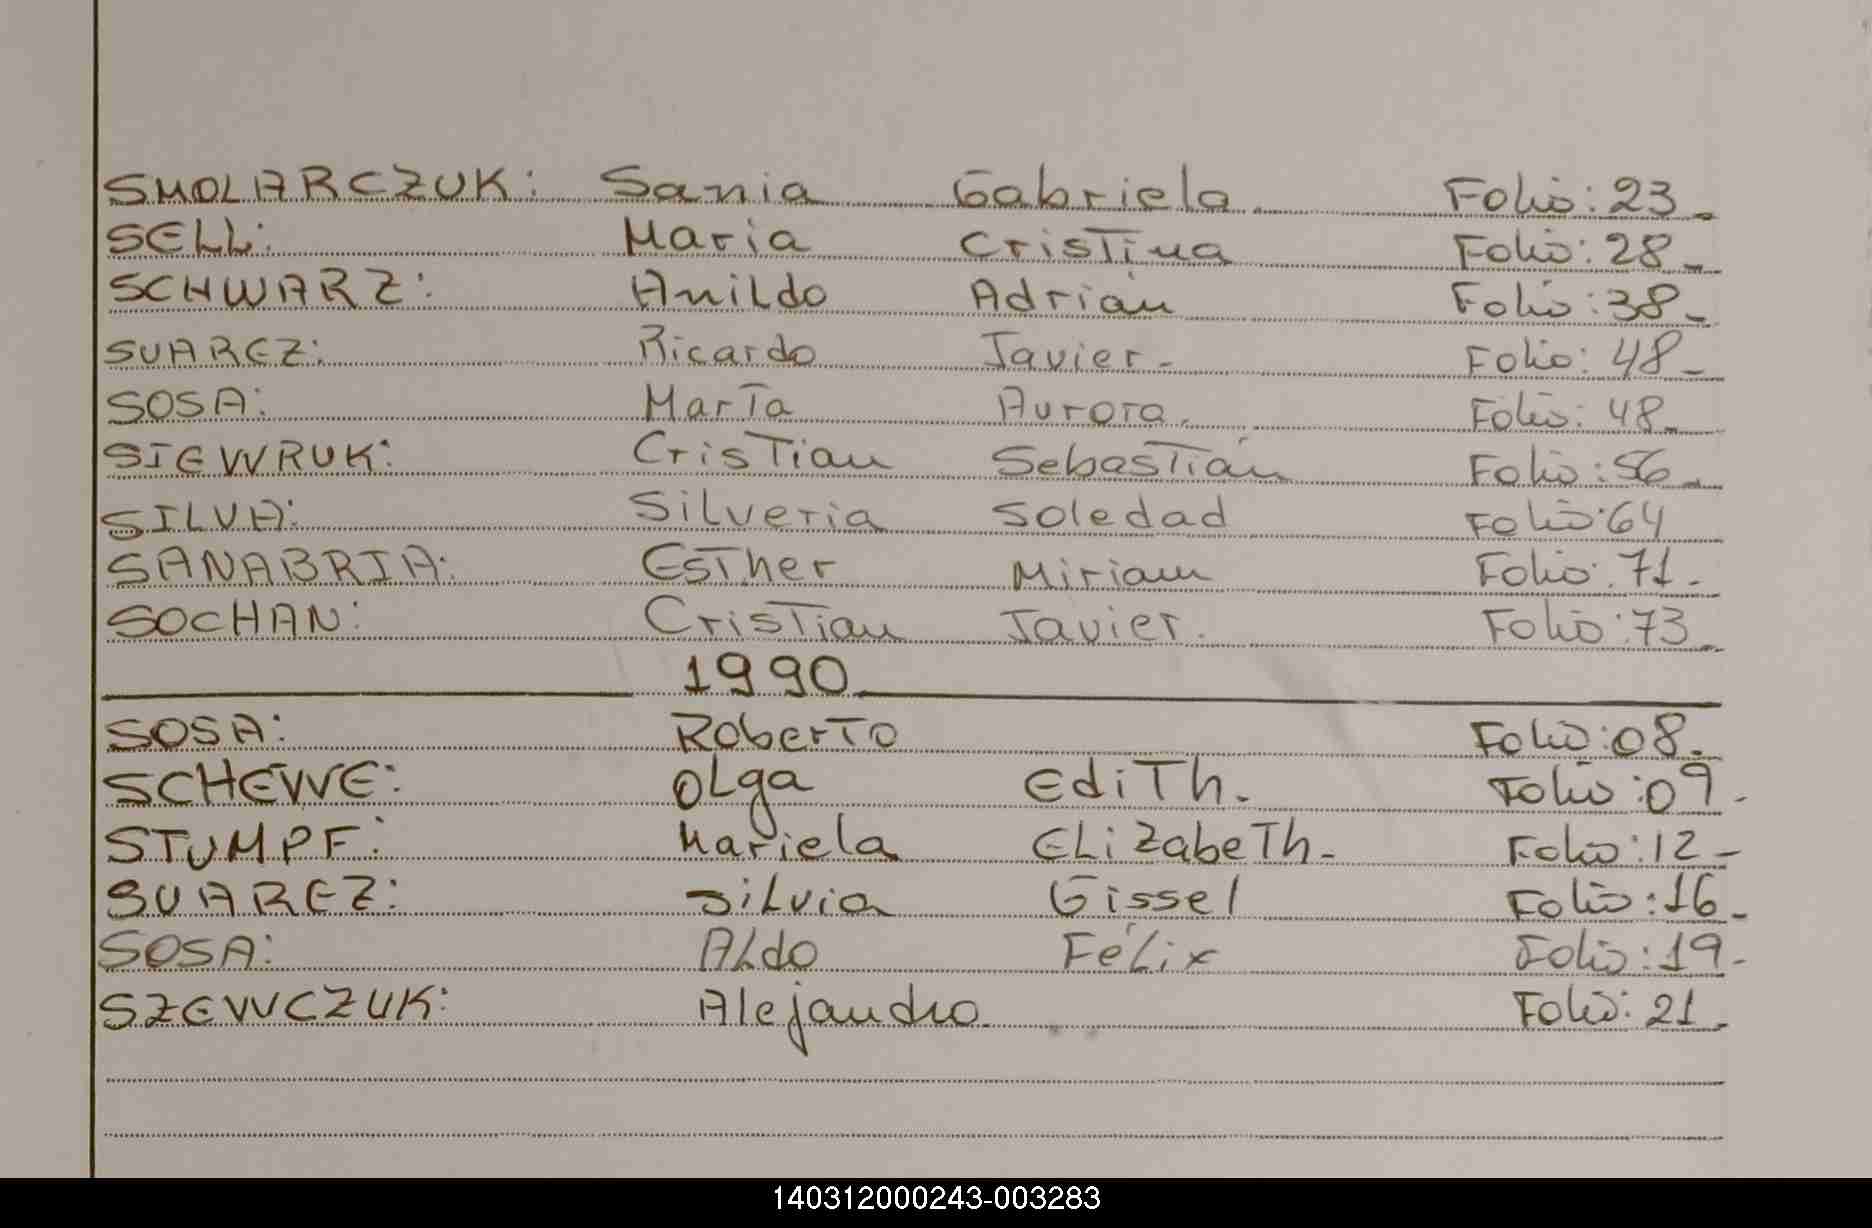 SMOLARCZUK: Sania Gabriela Folio: 23-
SELL: Maria Cristina Folio: 28-
SCHWARZ: Anildo Adrián Folio: 38-
SUAREZ: Ricardo Javier- Folio: 48-
SOSA: Marta Aurora. Folio: 48-
SIEWRUK: Cristian Sebastián Folio: 56-
SILVA: Silveria Soledad Folio: 64
SANABRIA: Esther Miriam Folio: 71-
SOCHAN: Cristian Javier. Folio: 73-
1990
SOSA: Roberto Folio: 08-
SCHEWE: Olga Edith. Folio: 09-
STUMPF: Mariela Elizabeth- Folio: 12-
SUAREZ: Silvia Gissel Folio: 16-
SOSA: Aldo Félix Folio: 19-
SZEWCZUK: Alejandro Folio: 21-
140312000243-003283